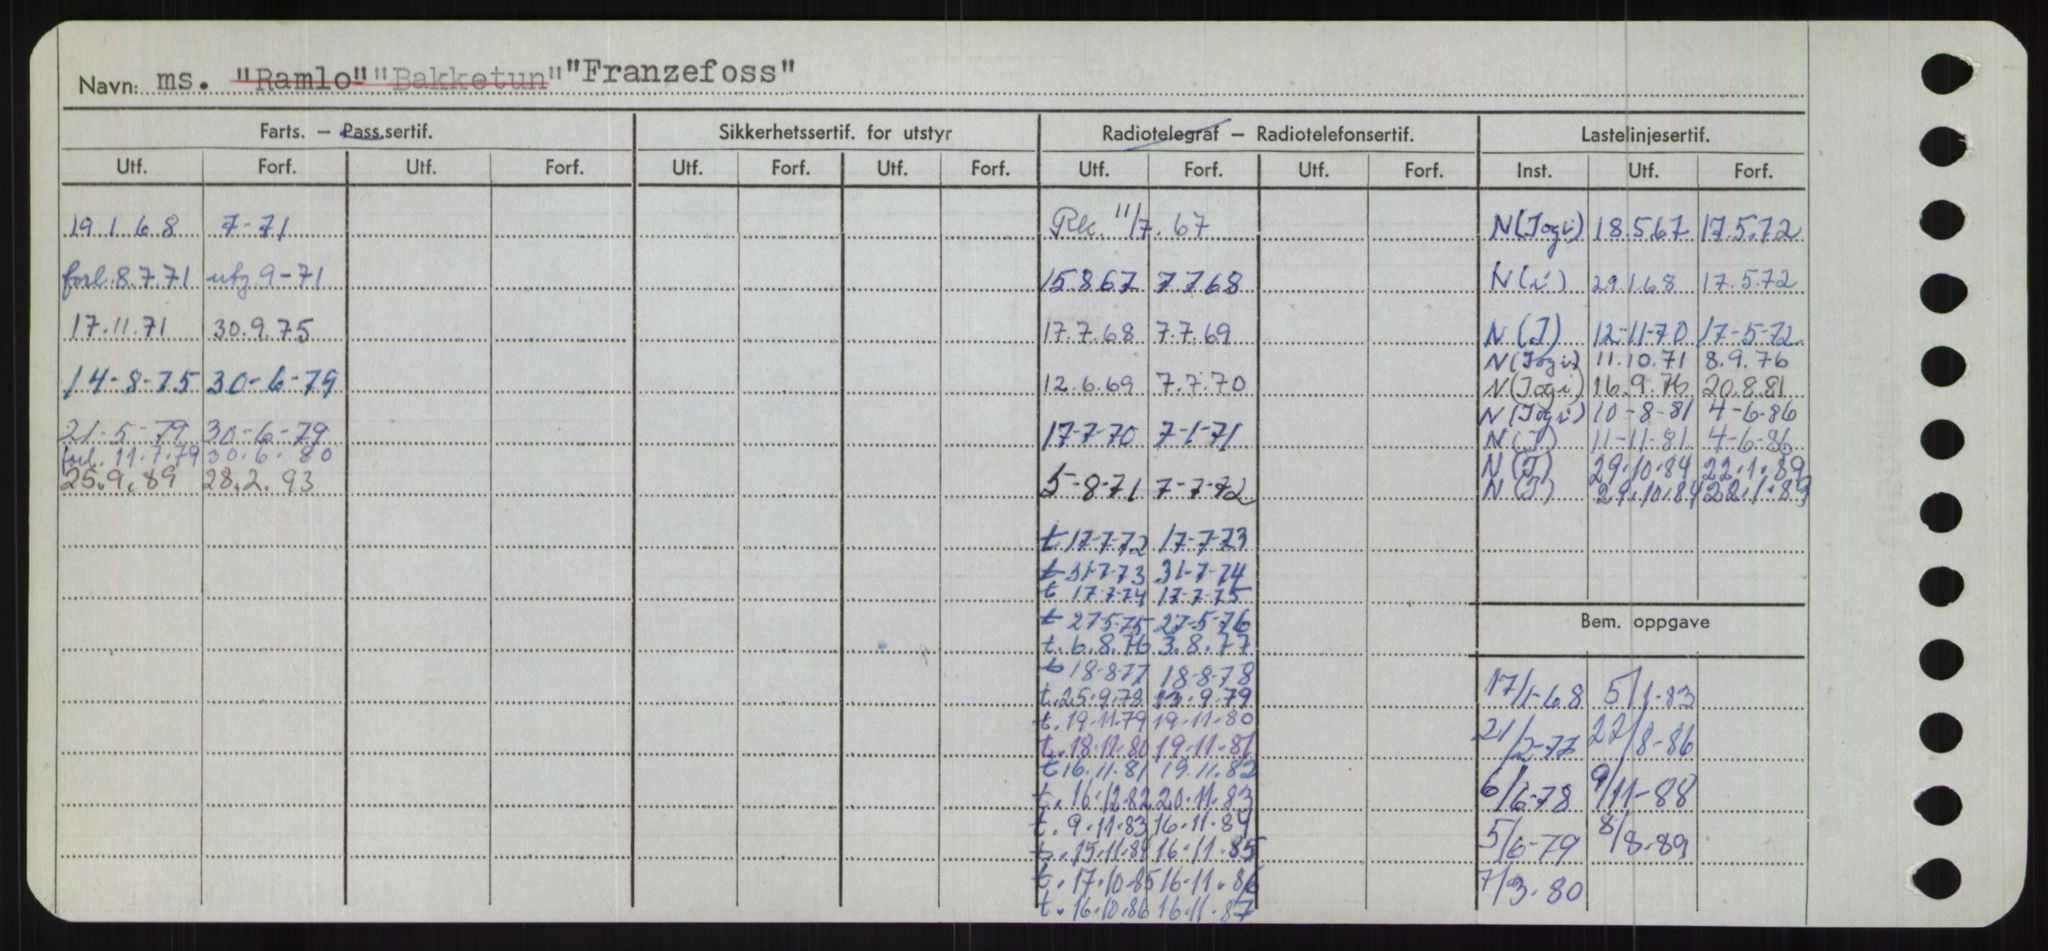 Navn: ms. "Ramlo" "Bakketun" "Franzefoss"
Farts. — Pass.sertif. Sikkerhetssertif. for utstyr Radiotelegraf — Radiotelefonsertif. Lastelinjesertif.
Utf. Forf. Utf. Forf. Utf. Forf. Utf. Forf. Utf. Forf. Utf. Forf. Inst. Utf. Forf.
19 1 68 7-71
forl. 8.7.71 utg. 9-71
17.11.71 30.9.75
14-8-75 30-6-79
21-5-79 30-6-79
forl. 11.7.79 30.6.80
25.9.89 28.2.93
Rk. 11/7. 67
15.8.67 7.7.68
17.7.68 7.7.69
12.6.69 7.7.70
17-7-70 7-1-71
5-8-71 7-7-72
t. 17-7-72 17-7-73
t 31-7-73 31-7-74
t 17-7-74 17-7-75
t 27-5-75 27-5-76
t. 6.8.76 3.8.77
t 18-8-77 18-8-78
t. 25.9.78 13.9.79
t. 19.11.79 19.11.80
t. 18.11.80 19.11.81
t 16.11.81 19.11.82
t. 16.12.82 20.11.83
t. 9.11.83 16.11.84
t. 15.11.84 16.11.85
t. 17.10.85 16.11.86
t. 16.10.86 16.11.87
N(Jogi) 18.5.67 17.5.72
N(i) 29.1.68 17.5.72
N (J) 12-11-70 17-5-72
N(Jogi) 11.10.71 8.9.76
N(Jogi) 16.9.76 20.8.81
N(Jogi) 10-8-81 4-6-86
N(J) 11-11-81 4-6-86
N(J) 29.10.84 22.1.89
N(J) 29.10.84 22.1.89
Bem. oppgave
17/1-68 5/1-83
21/2-77 22/8-86
6/6-78 9/11-88
5/6-79 8/8-89
7/3.80